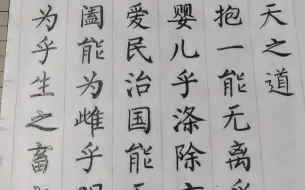 天之道
抱一能无离乎
婴儿乎涤除
爱民治国能
阖能为雌乎明
为乎生之畜